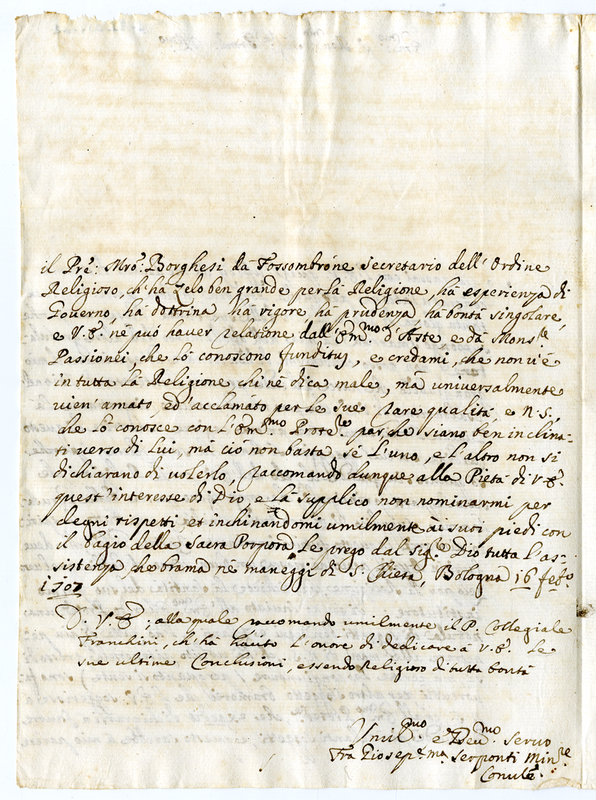 il Pre: Mro: Borghesi da Fossombrone secretario dell'Ordine
Religioso, ch'ha Zelo ben grande per la Religione, ha esperienza di
Governo, ha dottrina ha vigore ha prudenza ha bontà singolare,
e V.E. ne può haver relatione dall'Emmo d'Aste e da Monsre
Passionei, che lo conoscono funditus, e credami, che non v'è
in tutta la Religione chi ne dica male, mà universalmente
vien'amato ed'acclamato per le sue rare qualità, e N.S.
che lo conosce con l'Emmo Protre par, che siano ben inclina-
ti verso di Lui, mà ciò non basta, se l'uno, e l'altro non si
dichiarano di volerlo, raccomando dunque alla Pietà di V.E.
quest'interesse di Dio, e la supplico non nominarmi per
degni rispetti et inchinandomi umilmente ai suoi piedi con
il bagio della Sacra Porpora Le prego dal Sigre Dio tutta l'as-
sistenza, che brama ne maneggi di S. Chiesa, Bologna 16 febo
1707
D. V.E., alla quale raccomando umilmente il P. Collegiale
Franchini, ch'hà hauuto l'onore di dedicare a V.E. le
sue ultime Conclusioni, essendo Religioso di tutta bontà
Umilmo e Devmo servo
Fra Giosepe ma Serponti Minre
Conule